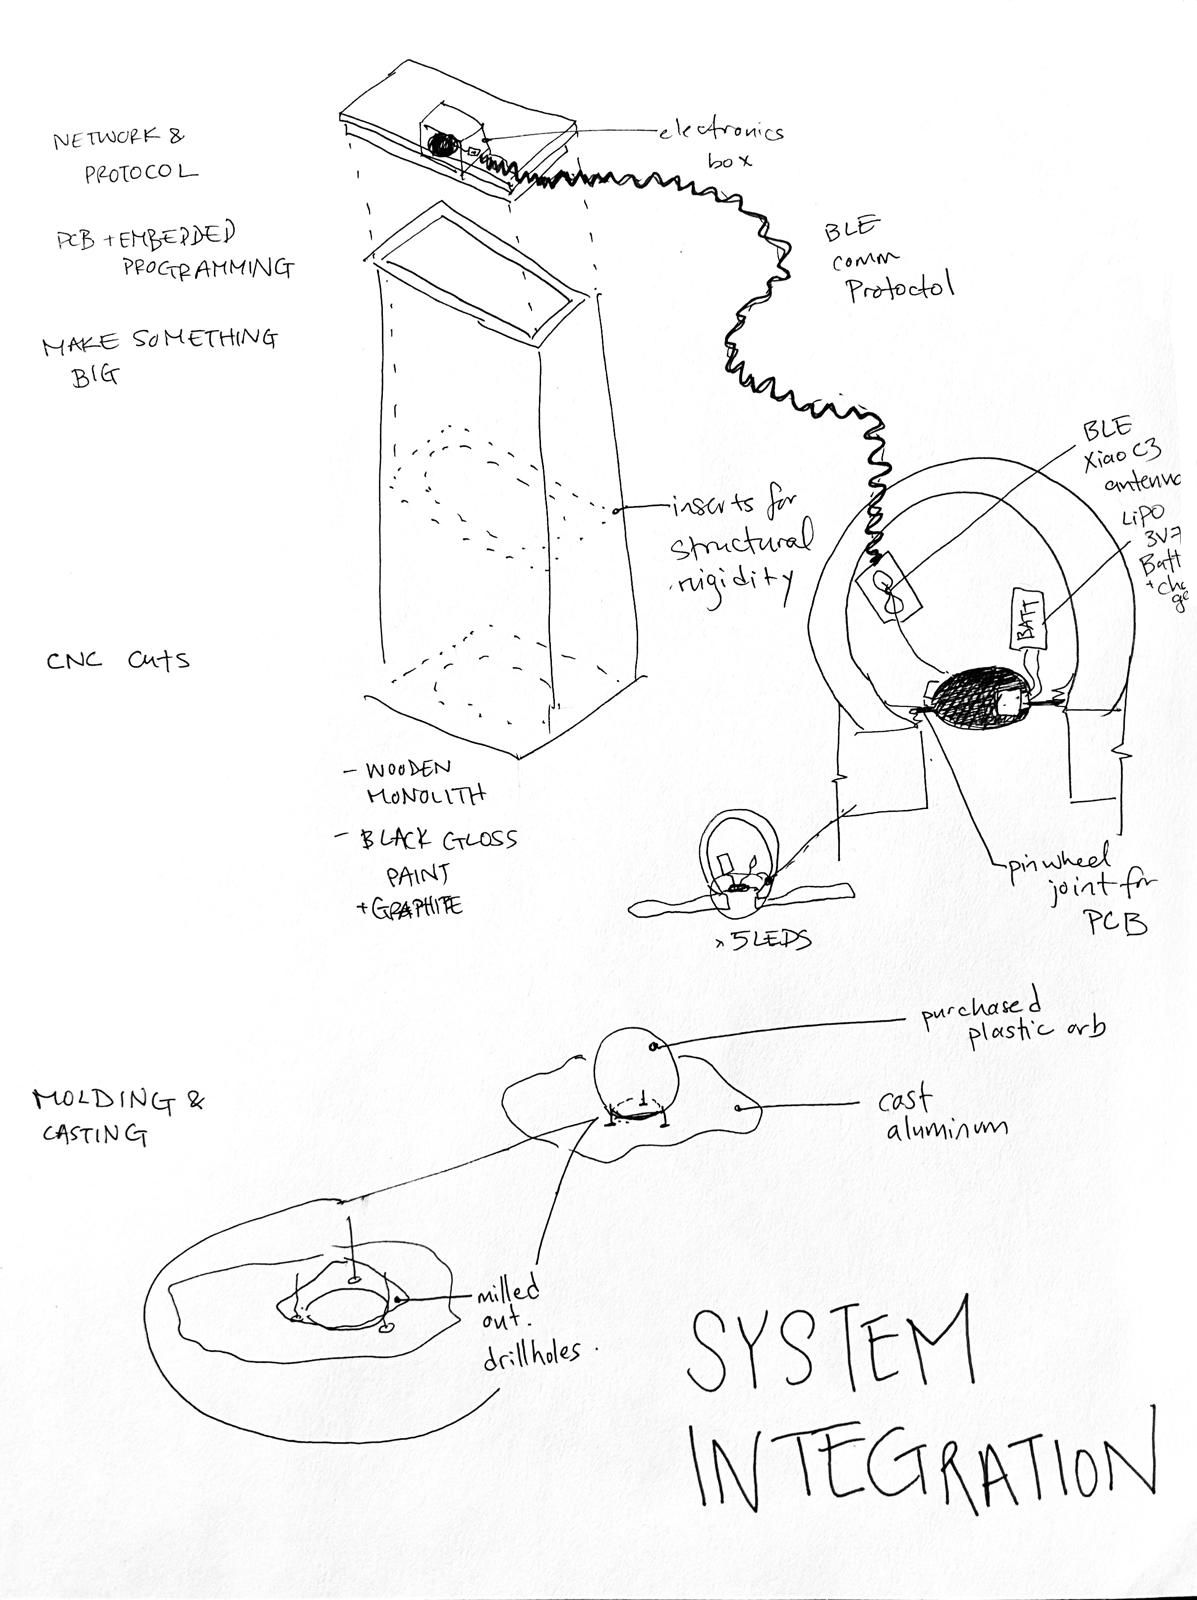 NETWORK &
PROTOCOL
electronics
box
PCB + EMBEDDED
PROGRAMMING
BLE
comm
Protoctol
MAKE SOMETHING
BIG
BLE
Xiao C3
antenna
LiPO
3V7
Batt
BATT
inserts for
structural
rigidity
CNC cuts
- WOODEN
MONOLITH
- BLACK GLOSS
PAINT
+ GRAPHITE
pinwheel
joint for
PCB
x 5 LEDS
purchased
plastic orb
MOLDING &
CASTING
cast
aluminum
milled
out.
drillholes.
SYSTEM
INTEGRATION